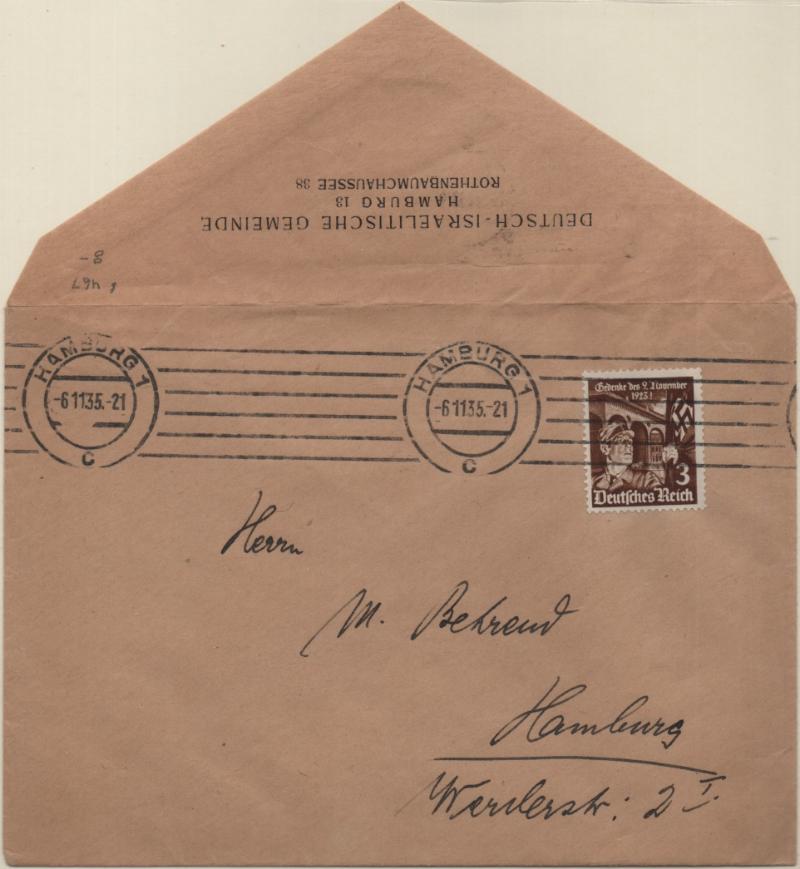 DEUTSCH-ISRAELITISCHE GEMEINDE
HAMBURG 13
ROTHENBAUMCHAUSSEE 38
8-
467
HAMBURG 1
-6 11 35.-21
C
HAMBURG 1
-6 11 35.-21
C
Gedenke des 9. November
1923!
3
Deutsches Reich
Herrn
M. Behrend
Hamburg
Werderstr: 2 I.